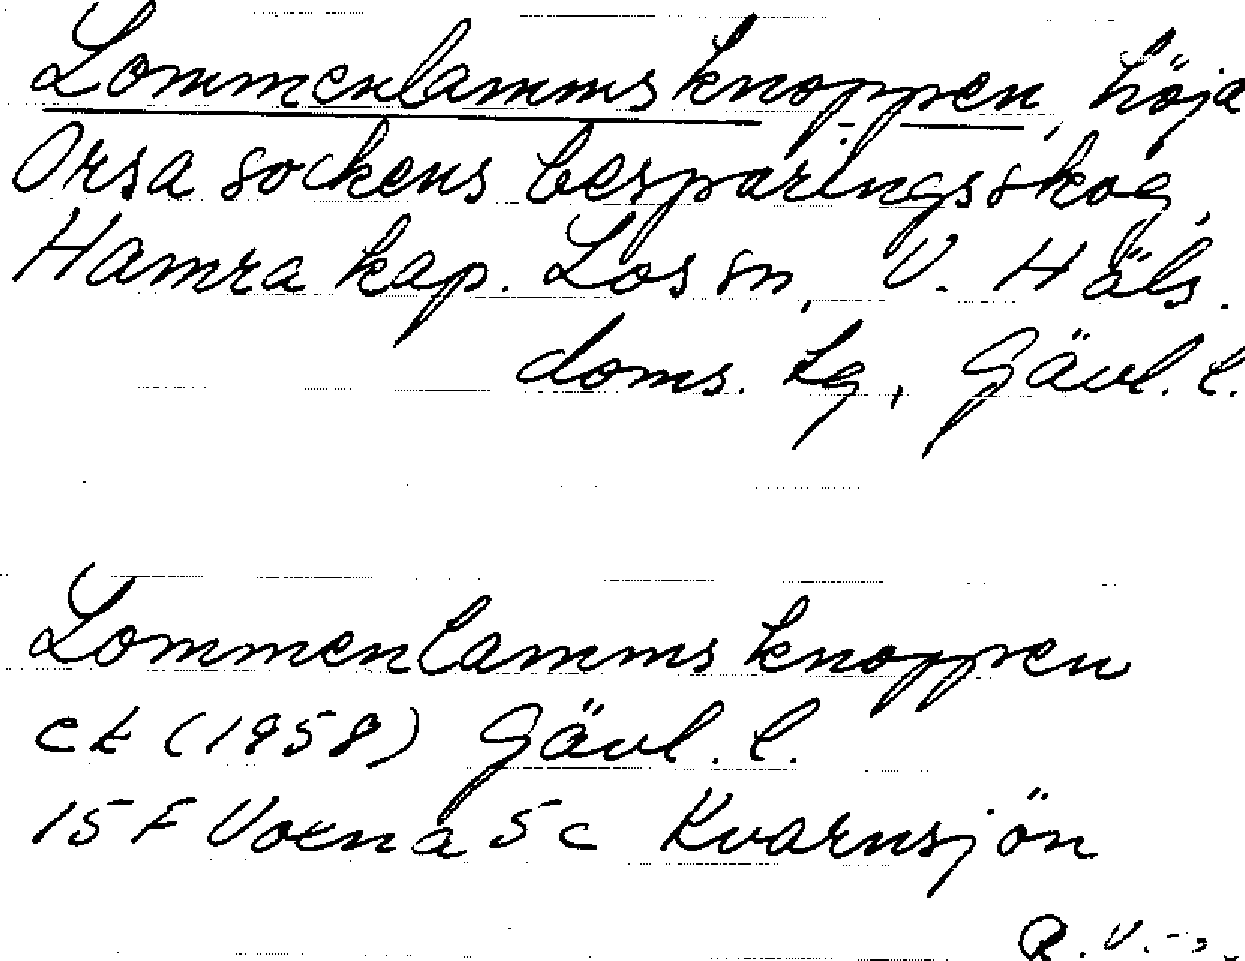 Lommenlammsknoppen, höjd
Orsa sockens besparingsskog,
Hamra kap. Los sn, V. Häls.
doms. tg, Gävl. l.
Lommenlammsknoppen
ek (1958) Gävl. l.
15 F Voxna 5 c Kvarnsjön
R. V.